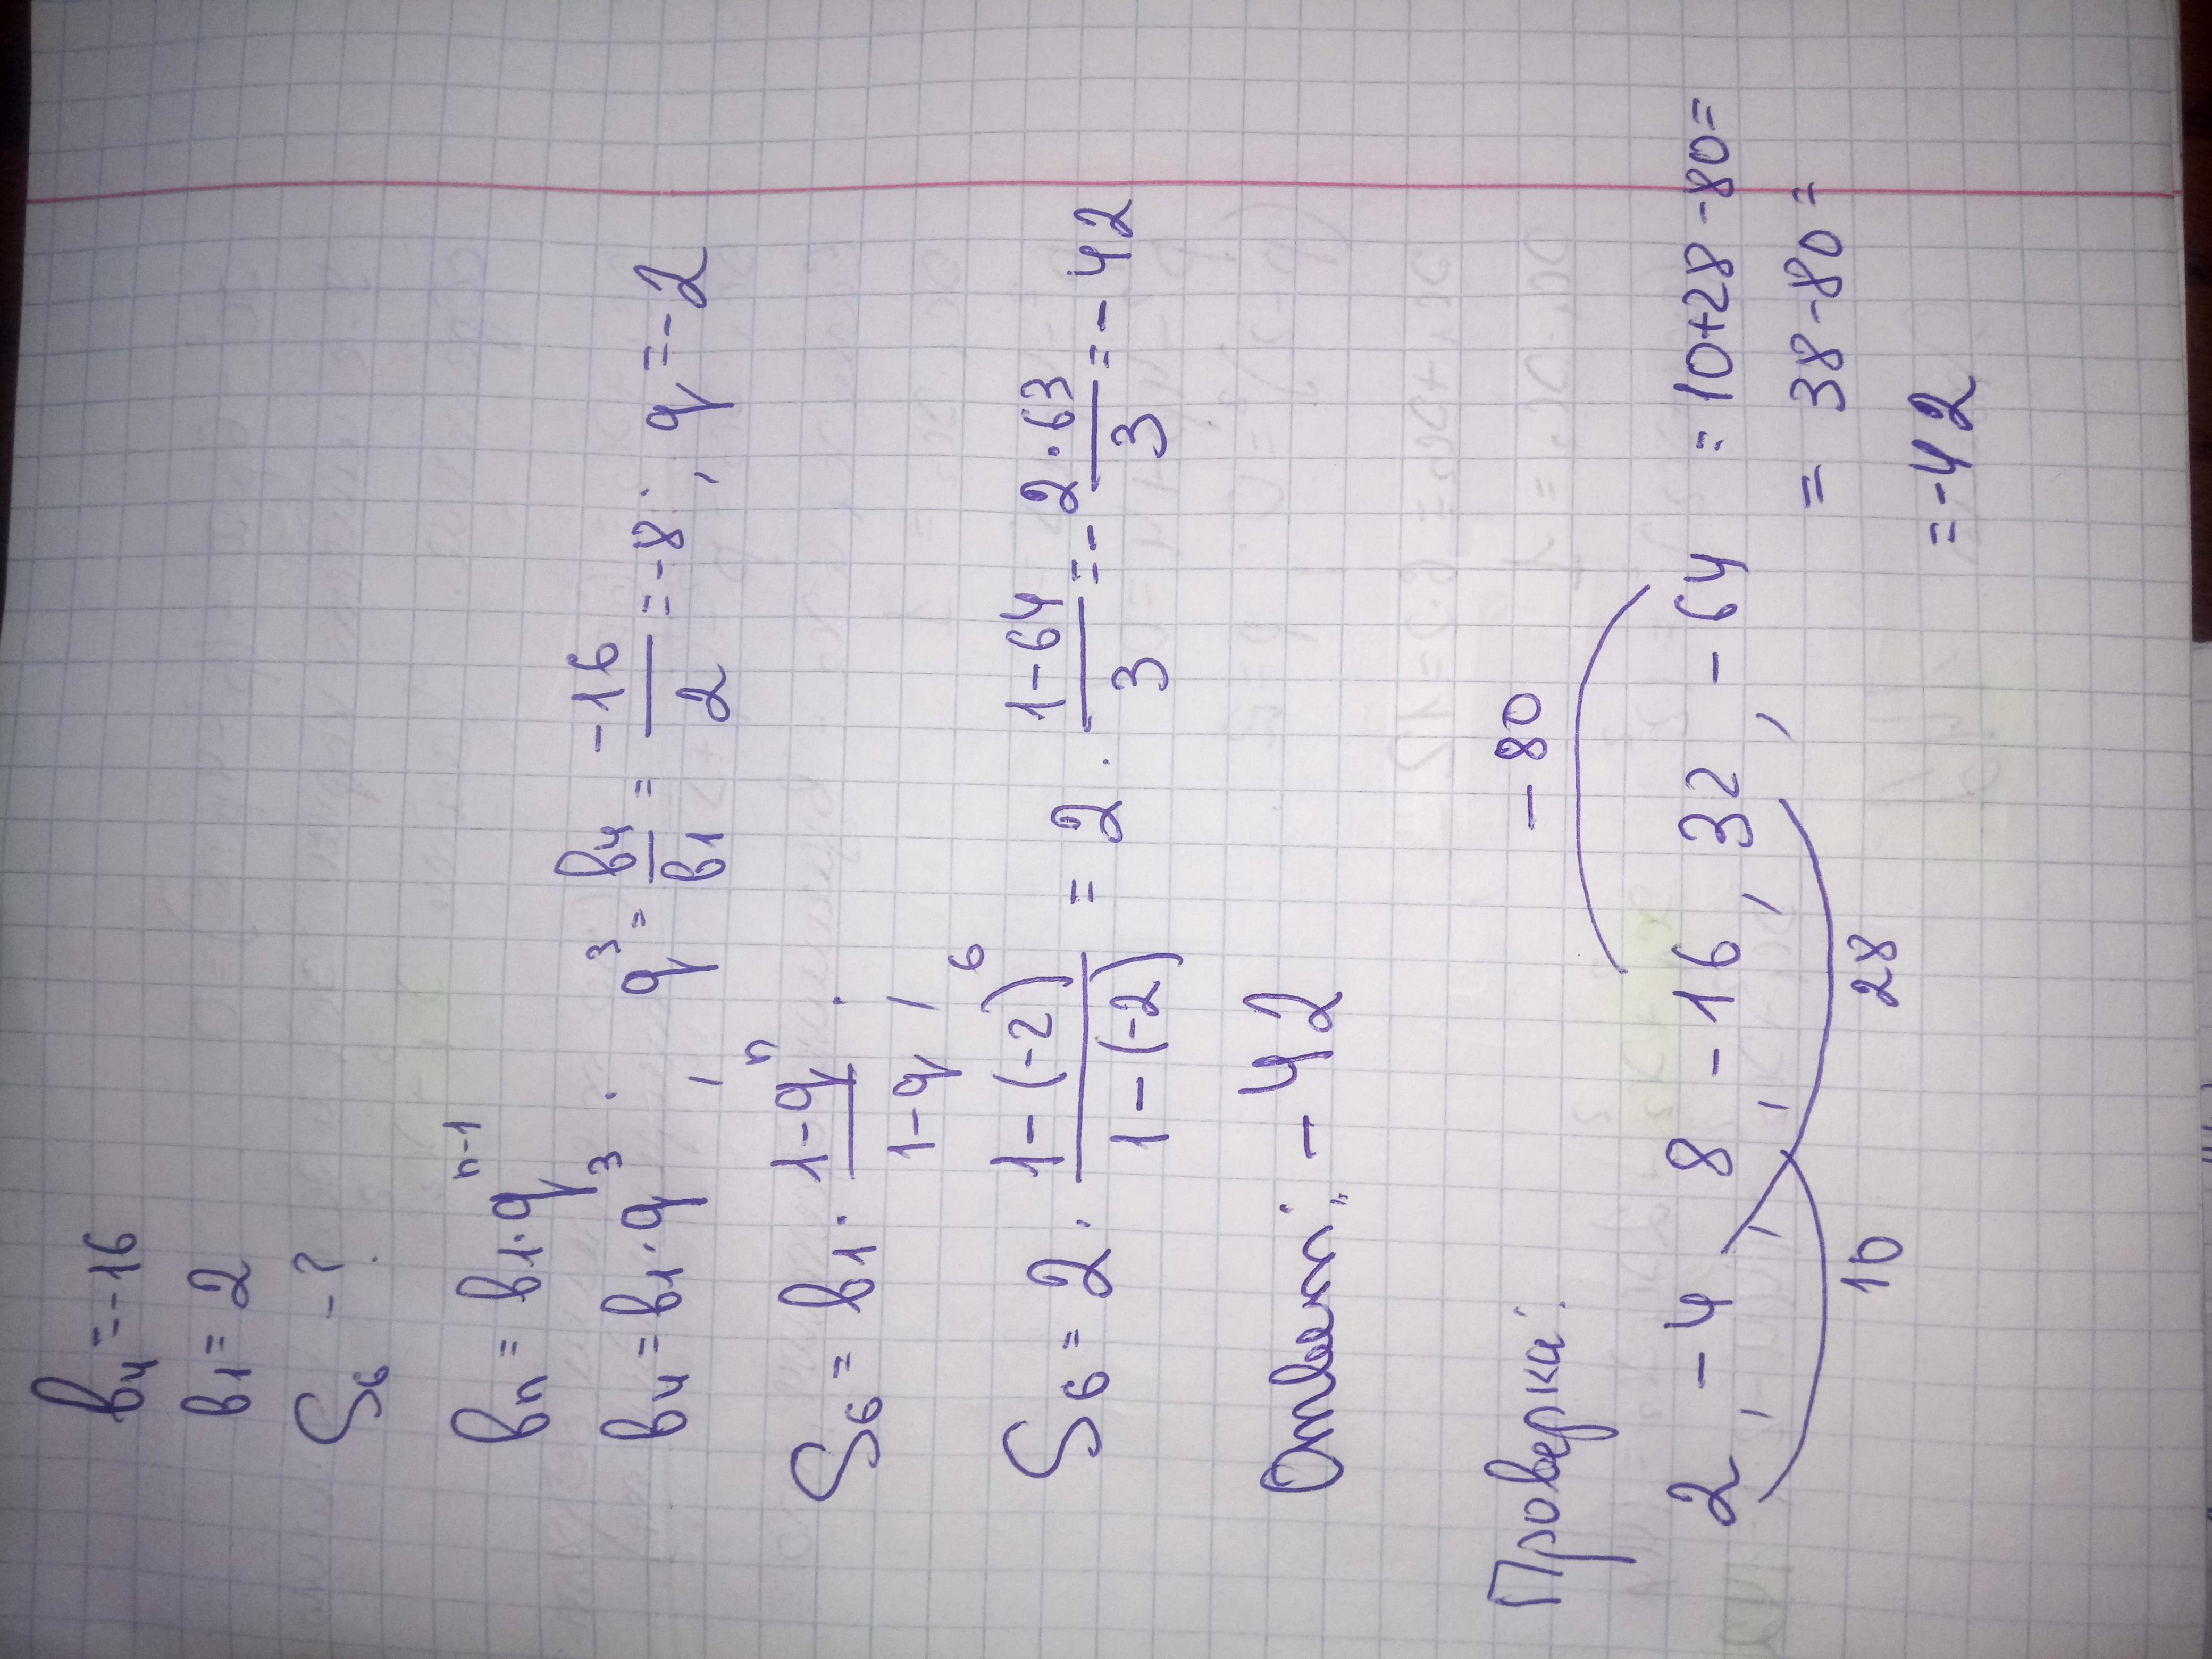 b₄=-16
b₁=2
S₆ -?
bₙ=b₁·qⁿ⁻¹
b₄=b₁·q³; q³=b₄/b₁=-16/2=-8; q=-2
S₆=b₁·(1-qⁿ)/(1-q);
S₆=2·(1-(-2)⁶)/(1-(-2))=2·(1-64)/3=-(2·63)/3=-42
Ответ: -42
Проверка:
-80
2, -4, 8, -16, 32, -64 =10+28-80=
10 28 = 38-80=
=-42